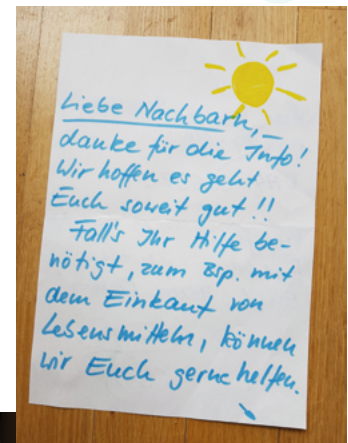 Liebe Nachbarn,
danke für die Info!
Wir hoffen es geht
Euch soweit gut!!
Fall's Ihr Hilfe be-
nötigt, zum Bsp. mit
dem Einkauf von
Lebensmitteln, können
wir Euch gerne helfen.